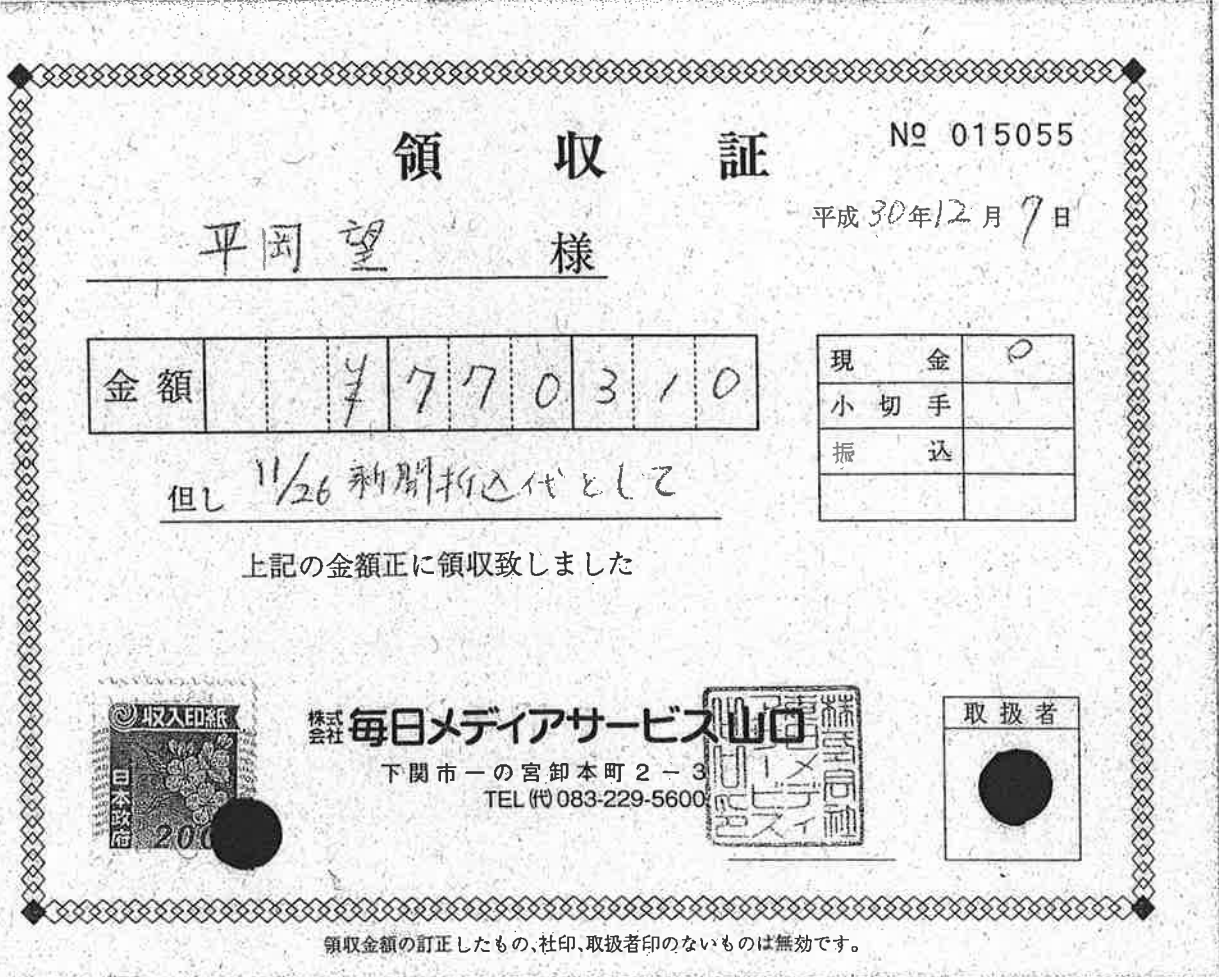 領収証
№ 015055
平成30年12月7日
平岡 望 様
金額 ¥770310
現金 ○
小切手
振込
但し 11/26 新聞折込代として
上記の金額正に領収致しました
収入印紙
日本政府
200
株式会社 毎日メディアサービス山口
下関市一の宮卸本町2-3
TEL(代)083-229-5600
取扱者
領収金額の訂正したもの、社印、取扱者印のないものは無効です。